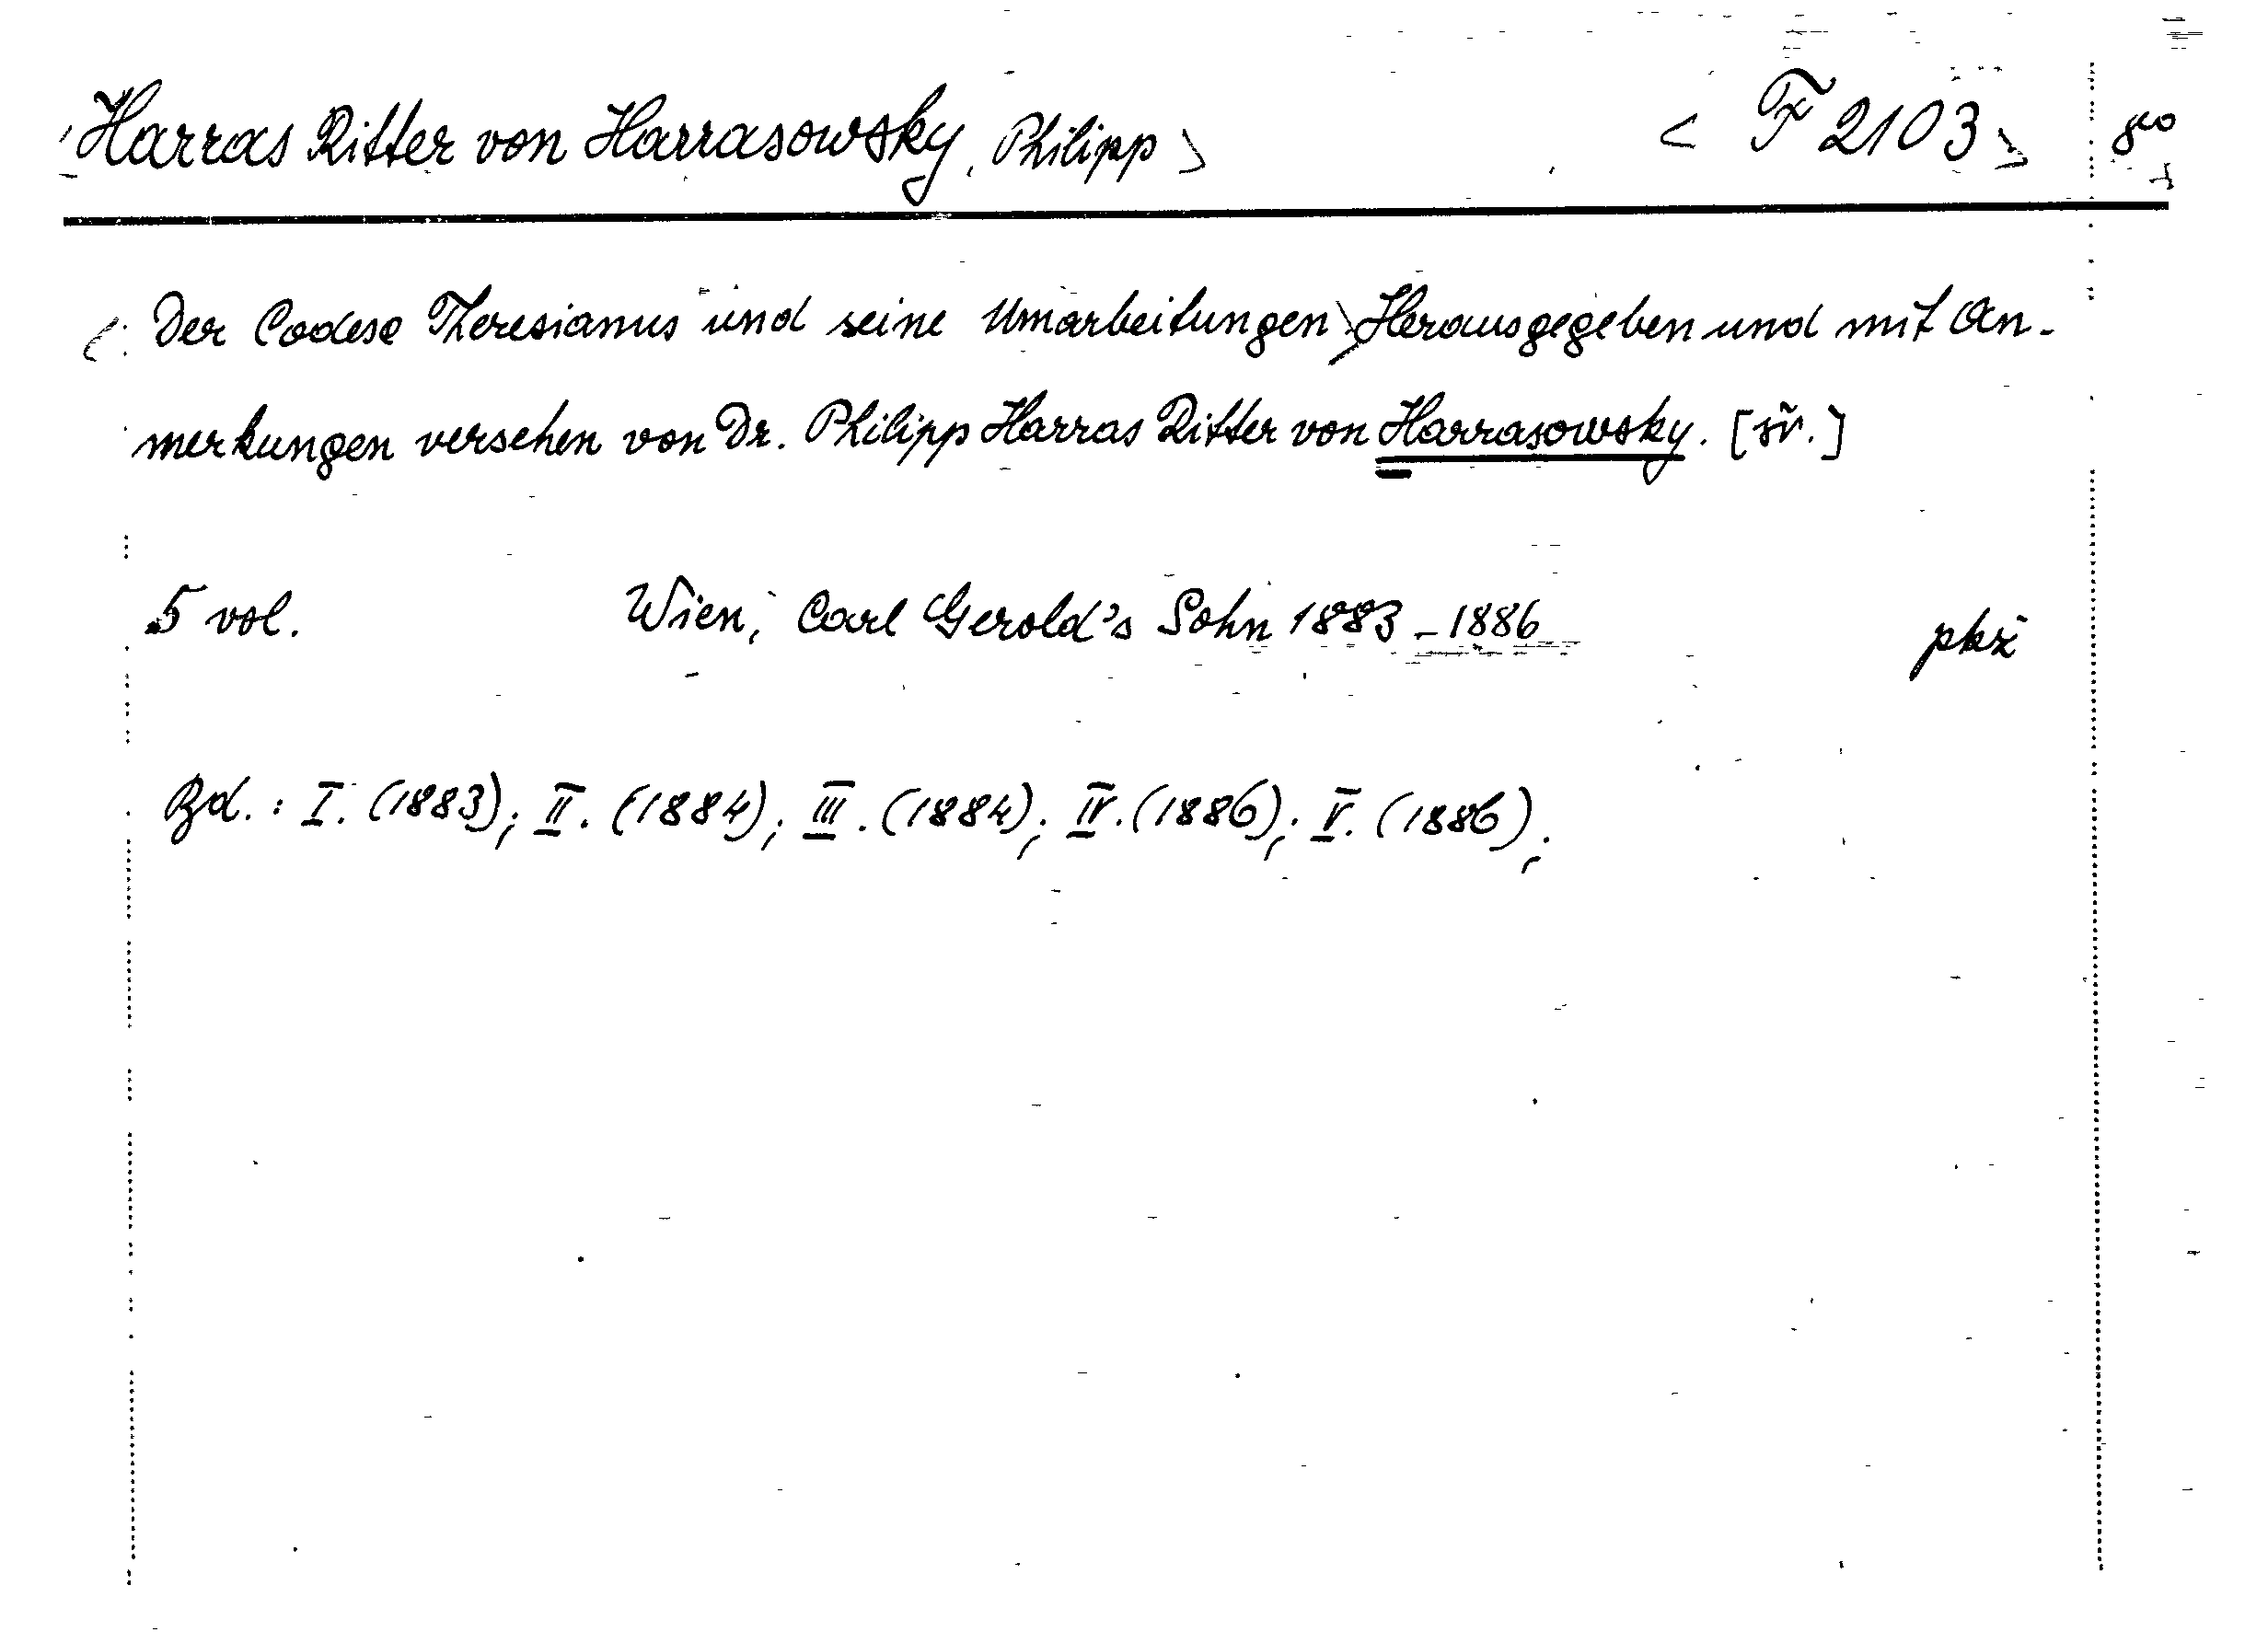 Harras Ritter von Harrasowsky, Philipp> <F 2103> 8vo
<Der Codex Theresianus und seine Umarbeitungen> Herausgegeben und mit An-
merkungen versehen von Dr. Philipp Harras Ritter von Harrasowsky. [sv.]
5 vol. Wien, Carl Gerold's Sohn 1883-1886 pkž
Bd.: I. (1883); II. (1884); III. (1884); IV. (1886); V. (1886);